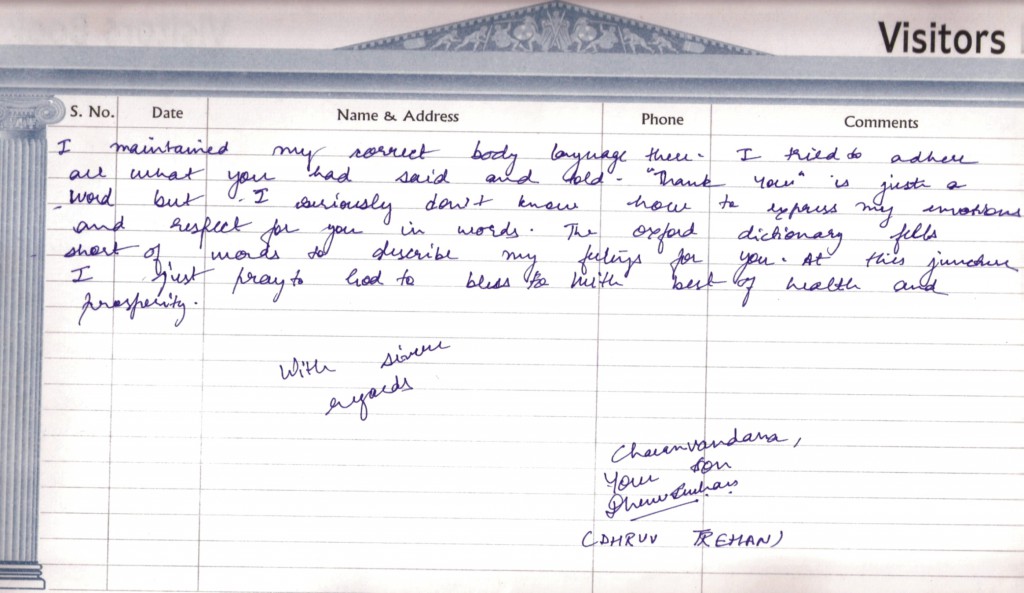 Visitors
S. No. Date Name & Address Phone Comments
I maintained my correct body language there. I tried to adhere
all what you had said and told. "Thank you" is just a
word but I curiously don't know how to express my emotions
and respect for you in words. The oxford dictionary fells
short of words to describe my felings for you. At this juncture
I just pray to God to bless with best of health and
prosperity.
With sincere
regards
Charanvandana,
Your son
(DHRUV TREHAN)